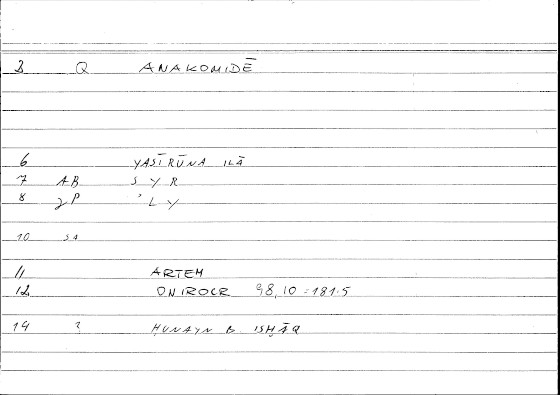 2 Q ANAKOMIDĒ
6 YAṢĪRŪNA ILĀ
7 AB Ṣ Y R
8 γP ʾ L Y
10 SA
11 ARTEM
12 ONIROCR 98,10 = 181.5
14 3 ḤUNAYN B. ISḤĀQ